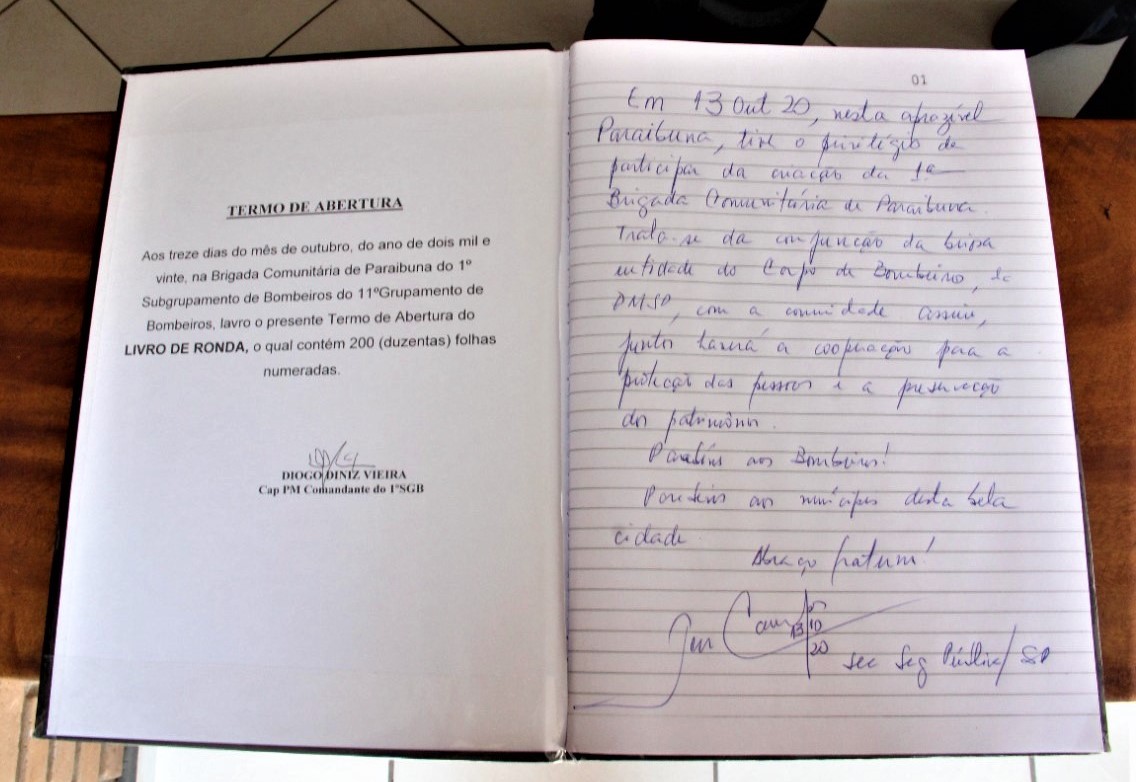 TERMO DE ABERTURA
Aos treze dias do mês de outubro, do ano de dois mil e
vinte, na Brigada Comunitária de Paraibuna do 1º
Subgrupamento de Bombeiros do 11ºGrupamento de
Bombeiros, lavro o presente Termo de Abertura do
LIVRO DE RONDA, o qual contém 200 (duzentas) folhas
numeradas.
DIOGO DINIZ VIEIRA
Cap PM Comandante do 1ºSGB
01
Em 13 Out 20, nesta aprazível
Paraibuna, tive o privilégio de
participar da criação da 1ª
Brigada Comunitária de Paraibuna.
Trata-se da conjunção da briosa
entidade do Corpo de Bombeiro, da
PMSP, com a comunidade assim,
juntos haverá a cooperação para a
proteção das pessoas e a preservação
do patrimônio.
Parabéns aos Bombeiros!
Parabéns aos munícipes desta bela
cidade.
Abraço fraterno!
Gen Campos
13
10
20
Sec Seg Pública/SP